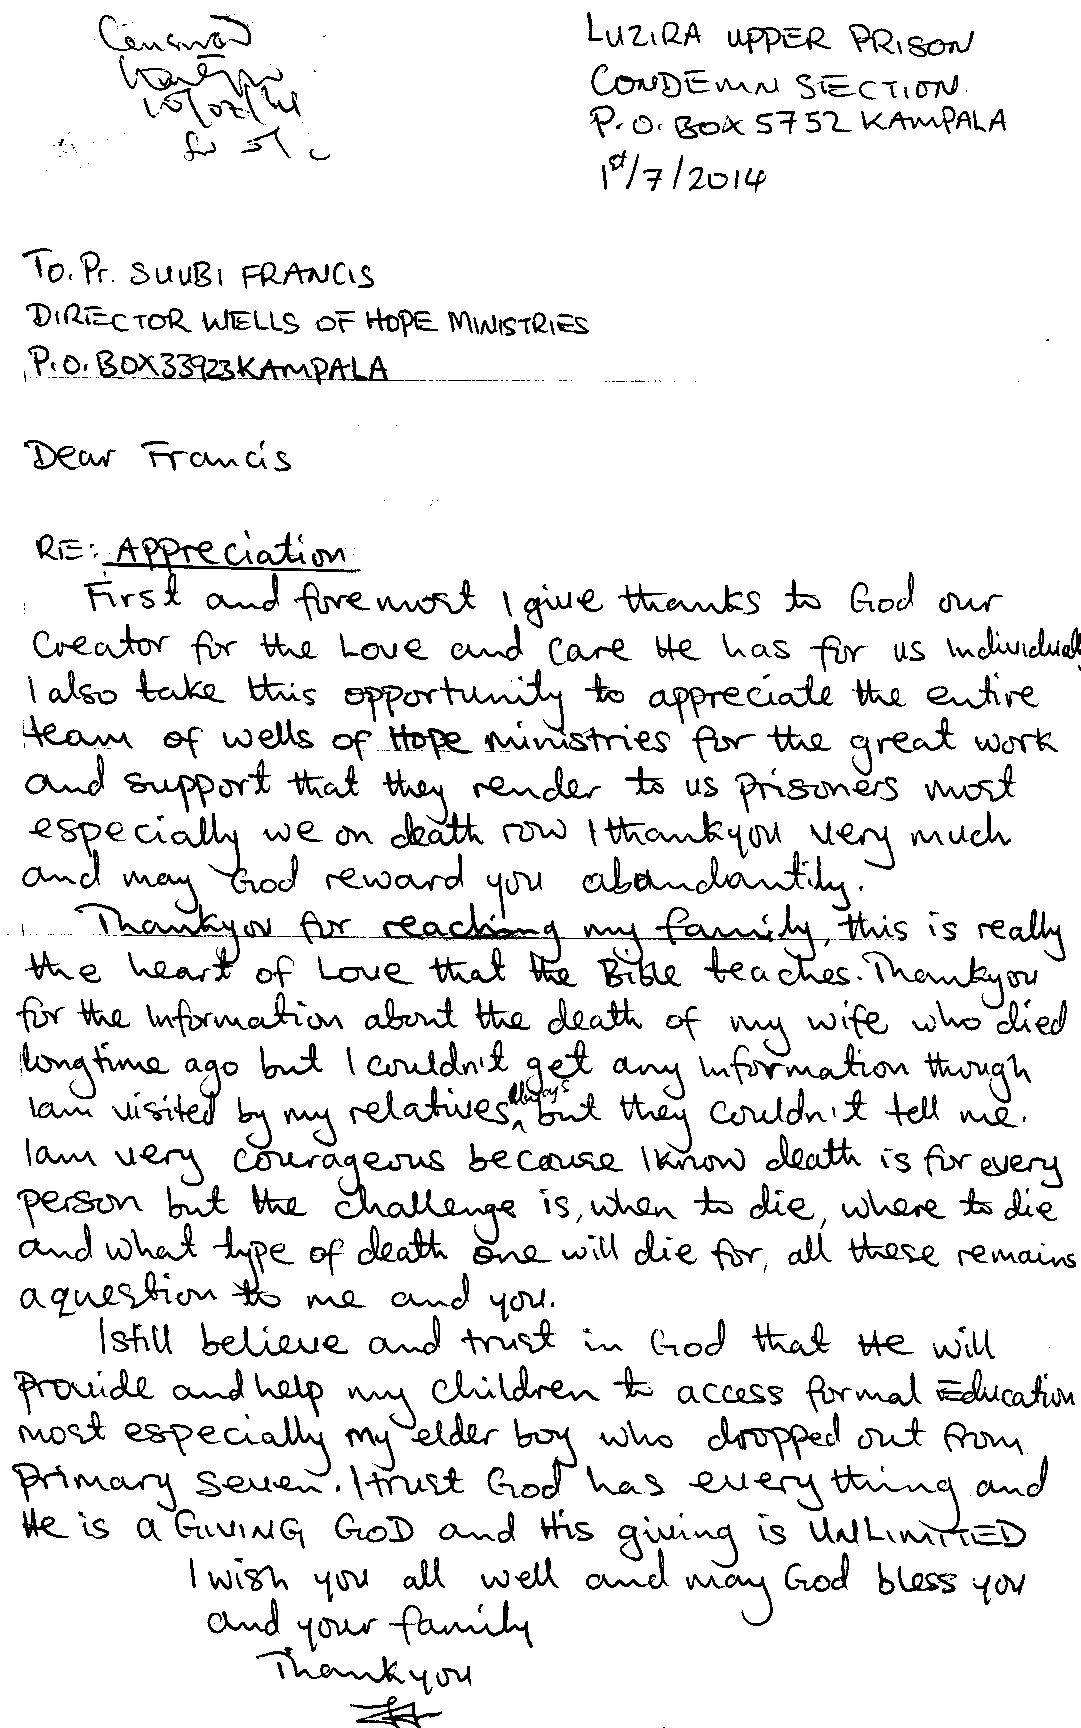 Censored
10/07/14
LUZIRA UPPER PRISON
CONDEMN SECTION.
P.O. BOX 5752 KAMPALA
1st/7/2014
To. Pr. SUUBI FRANCIS
DIRECTOR WELLS OF HOPE MINISTRIES
P.O. BOX 33923 KAMPALA
Dear Francis
RE: Appreciation
First and foremost I give thanks to God our
Creator for the Love and care He has for us Individual
I also take this opportunity to appreciate the entire
team of wells of Hope ministries for the great work
and support that they render to us prisoners most
especially we on death row I thankyou very much
and may God reward you abandantily.
Thankyou for reaching my family, this is really
the heart of Love that the Bible teaches. Thankyou
for the Information about the death of my wife who died
longtime ago but I couldn't get any Information though
Iam visited by my relatives always but they couldn't tell me.
Iam very courageous because I know death is for every
person but the challenge is, when to die, where to die
and what type of death one will die for, all these remains
a question to me and you.
I still believe and trust in God that He will
provide and help my children to access formal Education
most especially my elder boy who dropped out from
primary seven. I trust God has every thing and
He is a GIVING GOD and His giving is UNLIMITED
I wish you all well and may God bless you
and your family
Thankyou